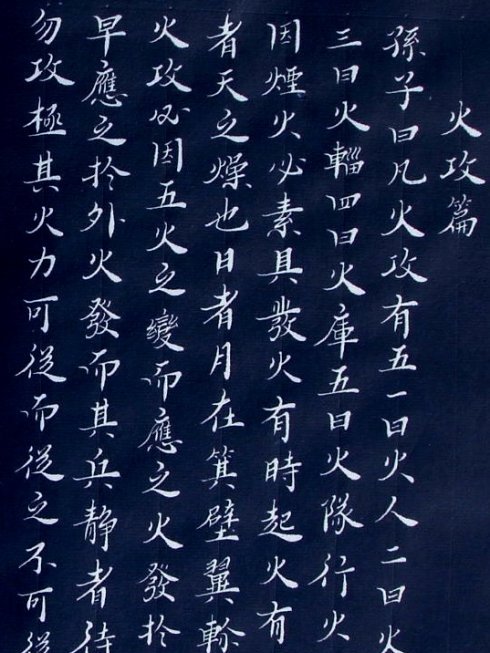 火攻篇
孫子曰凡火攻有五一曰火人二曰火
三曰火輜四曰火庫五曰火隊行火
因煙火必素具發火有時起火有
者天之燥也日者月在箕壁翼軫
火攻必因五火之變而應之火發於
早應之於外火發而其兵靜者待
勿攻極其火力可從而從之不可從